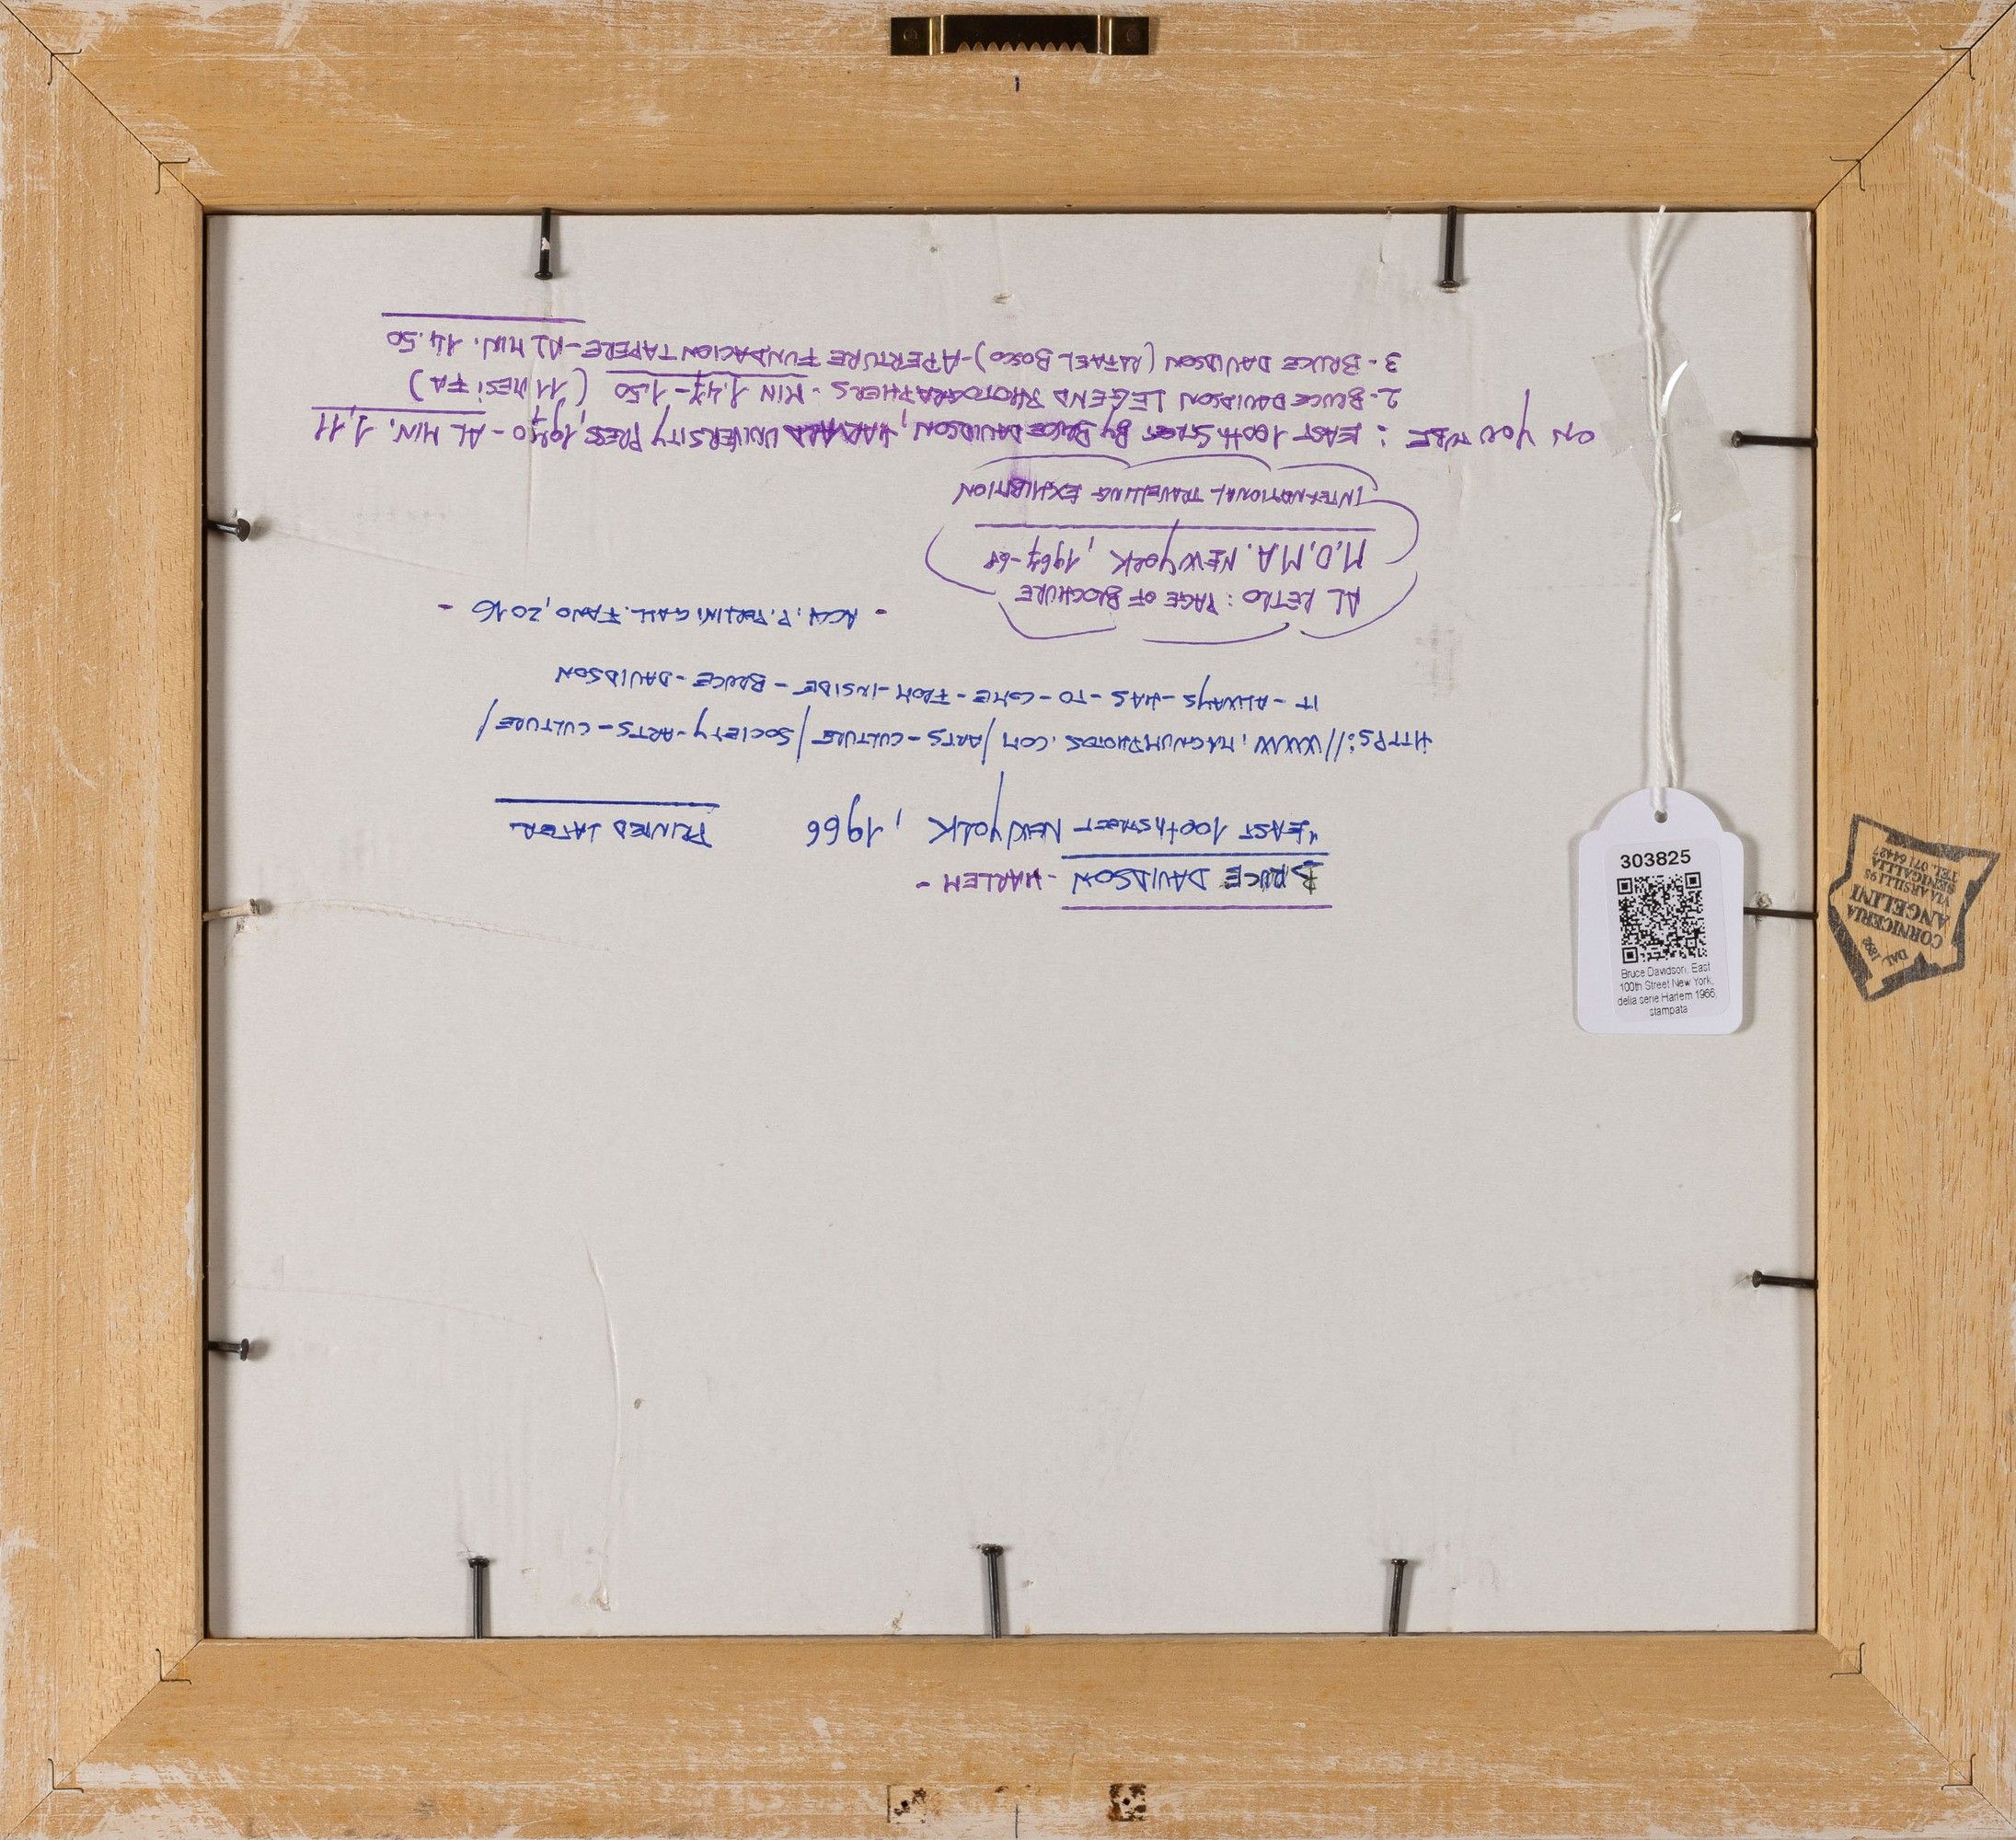 BRUCE DAVIDSON - HARLEM -
"EAST 100th STREET NEW YORK, 1966 PRINTED LATER
HTTPS://WWW.MAGNUMPHOTOS.COM/ARTS-CULTURE/SOCIETY-ARTS-CULTURE/
IT-ALWAYS-HAS-TO-COME-FROM-INSIDE-BRUCE-DAVIDSON
- GALL. FANO, 2016 -
AL RETRO: PAGE OF BROCHURE
M.O.M.A. NEW YORK, 1967-68
INTERNATIONAL TRAVELLING EXHIBITION
ON YOU TUBE: EAST 100th STREET BY BRUCE DAVIDSON, HARVARD UNIVERSITY PRESS, 1970 - AL MIN. 1,11
2- BRUCE DAVIDSON LEGEND PHOTOGRAPHERS - MIN 1,47-1.50 (11 MESI FA)
3- BRUCE DAVIDSON (RAFAEL BOSCO) - APERTURE FUNDACION TAPERE - AL MIN. 14.50
303825
Bruce Davidson, East
100th Street New York,
della serie Harlem 1966,
stampata
DAL 1892
CORNICERIA
ANGELINI
VIA ARSILLI 98
SENIGALLIA
TEL. 071 64427